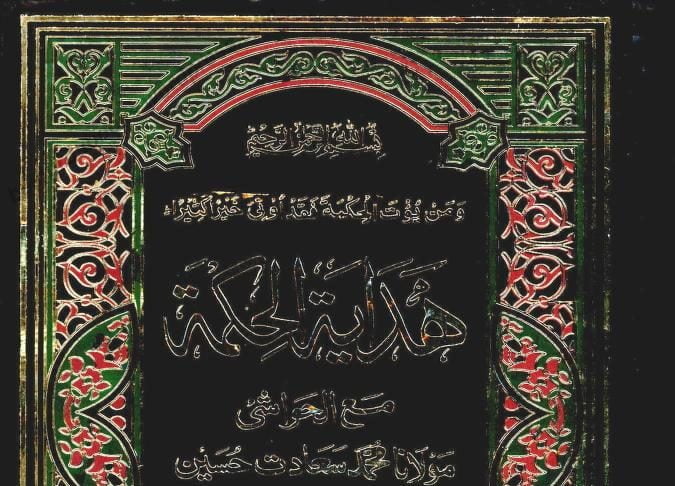 بسم الله الرحمن الرحيم
وَمَنْ يُؤْتَ الْحِكْمَةَ فَقَدْ أُوتِيَ خَيْرًا كَثِيْرًا
هَدَايَةُ الْحِكْمَة
مَعَ الْحَوَاشِي
مَوْلَانَا مُحَمَّد سَعَادَت حُسَيْن